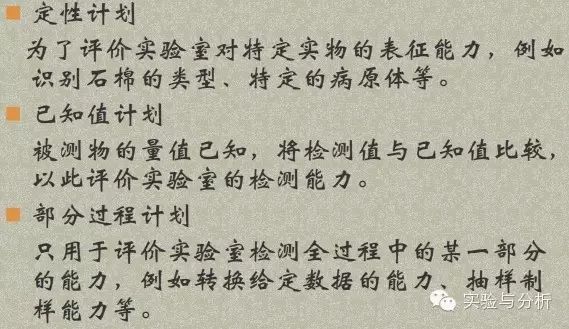 定性计划
为了评价实验室对特定实物的表征能力，例如
识别石棉的类型、特定的病原体等。
已知值计划
被测物的量值已知，将检测值与已知值比较，
以此评价实验室的检测能力。
部分过程计划
只用于评价实验室检测全过程中的某一部分
的能力，例如转换给定数据的能力、抽样制
样能力等。
实验与分析